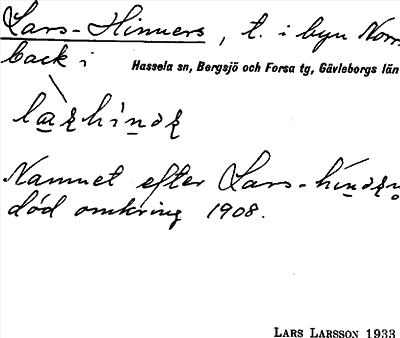 Lars-Hinners, t. i byn Norr
back i Hassela sn, Bergsjö och Forsa tg, Gävleborgs län
Namnet efter Lars-
död omkring 1908.
LARS LARSSON 1933